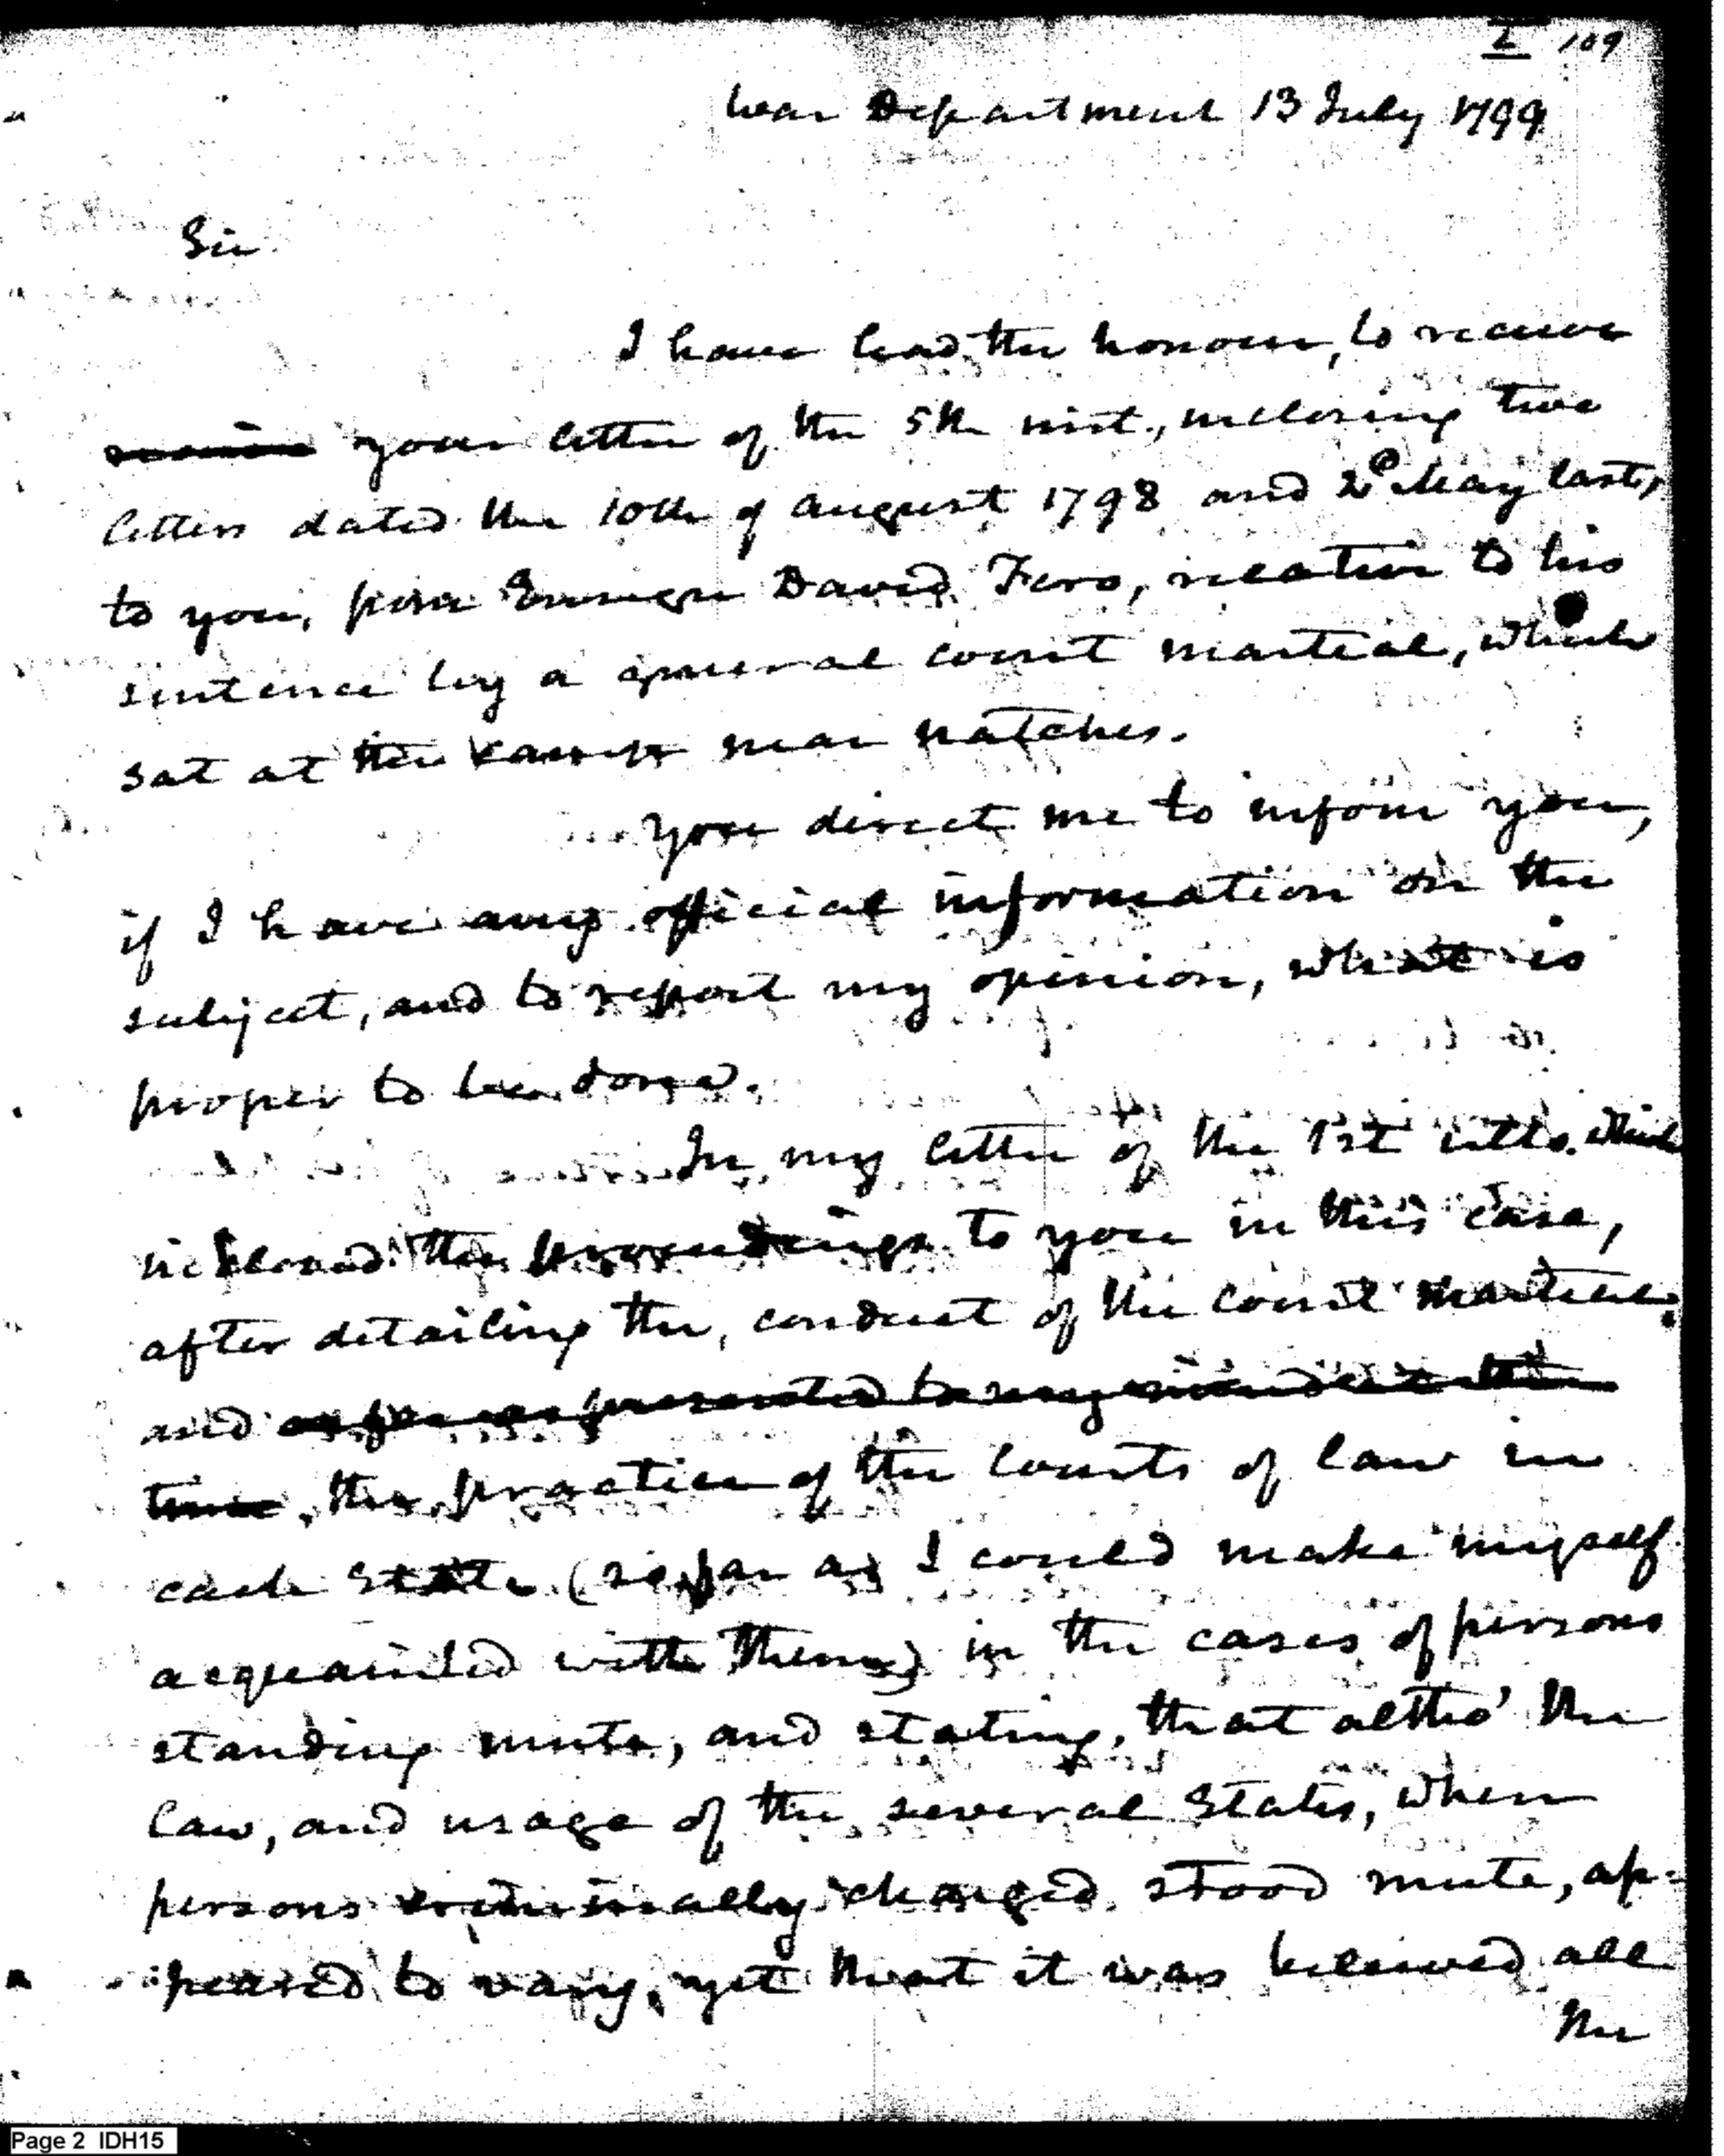 L 109
War Department 13 July 1799
Sir
I have had the honour, to receive
receive your letter of the 5th inst., inclosing two
letters dated the 10th of August 1798 and 2d May last,
to you, from Ensign David Fero, relative to his
sentence by a general court martial, which
sat at the camp near Natches.
You direct me to inform you,
if I have any official information on the
subject, and to report my opinion, what is
proper to be done.
In my letter of the 1st ulto. which
inclosed the proceedings to you in this case,
after detailing the, conduct of the court martial,
and as far as presented to my mind at the
time, the practice of the courts of law in
each State (so far as I could make myself
acquainted with them) in the cases of persons
standing mute, and stating, that altho' the
law, and usage of the several States, when
persons criminally charged, stood mute, ap=
peared to vary, yet that it was believed all
the
Page 2 IDH15